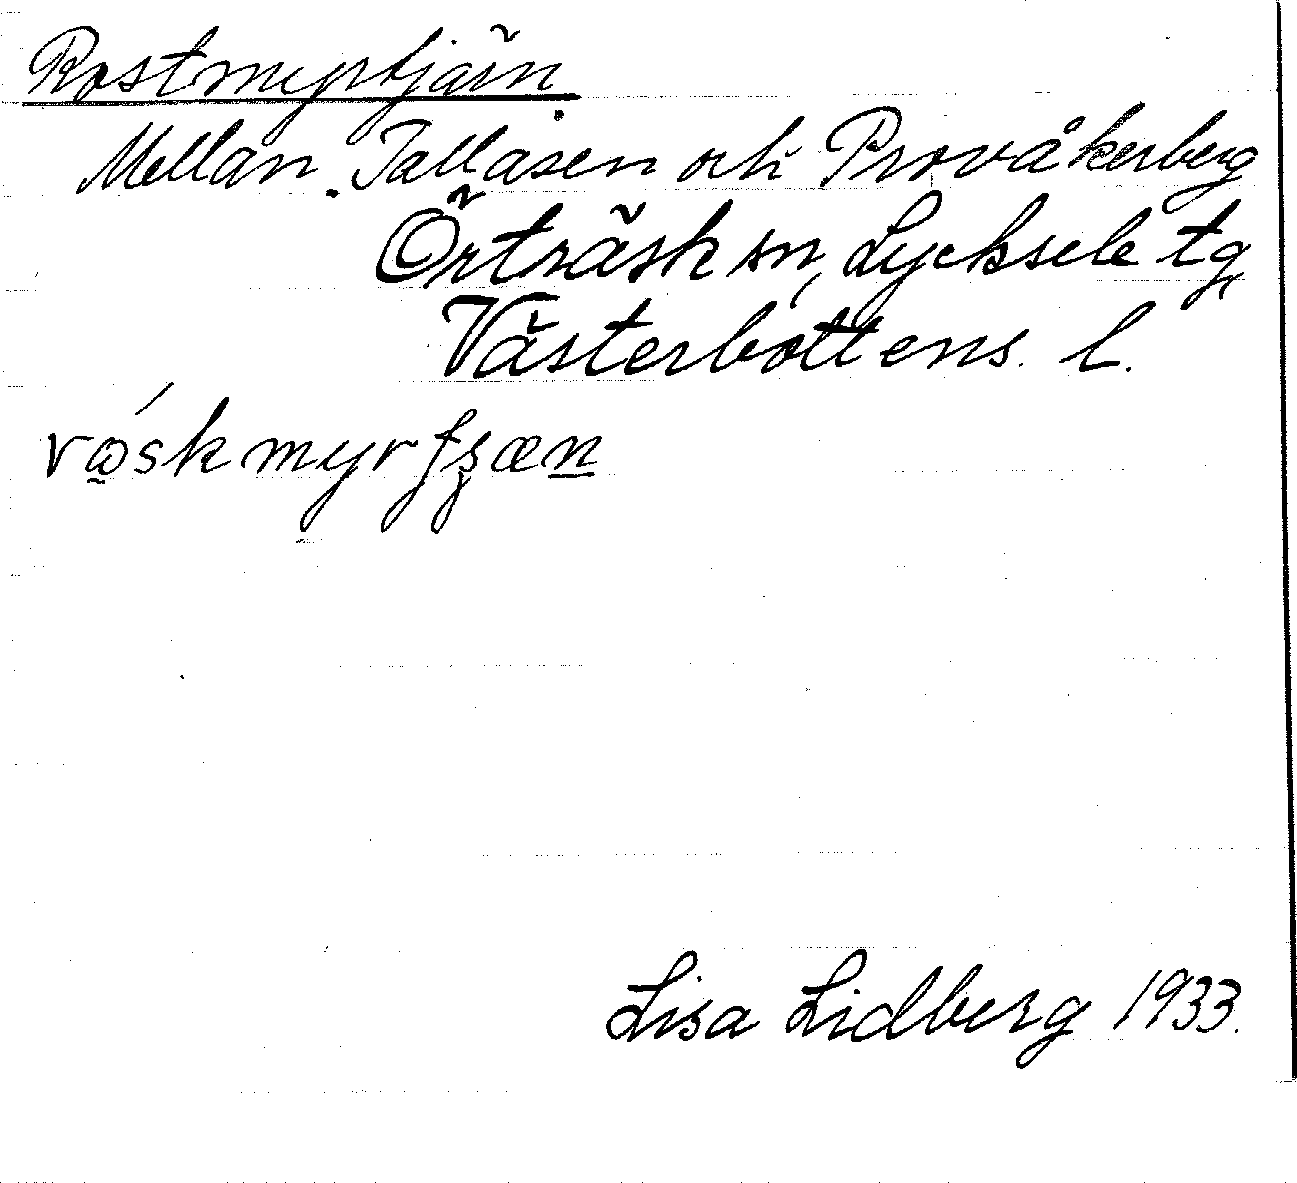 Rostmyrtjärn.
Mellan Tallåsen och Provåkerberg
Örträsk sn, Lycksele tg
Västerbottens l.
Lisa Lidberg 1933.